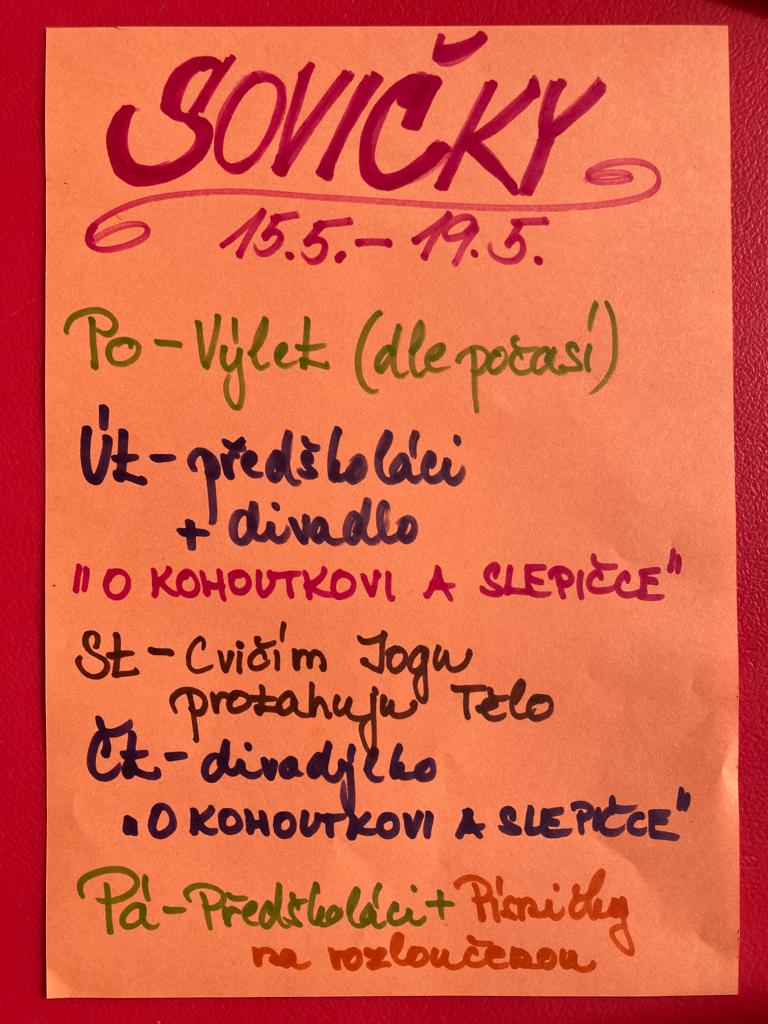 SOVIČKY
15.5. - 19.5.
Po - Výlet (dle počasí)
Út - předškoláci
+ divadlo
"O KOHOUTKOVI A SLEPIČCE"
St - Cvičím Jogu
protahuju Tělo
Čt - divadýlko
"O KOHOUTKOVI A SLEPIČCE"
Pá - Předškoláci + Písničky
na rozloučenou